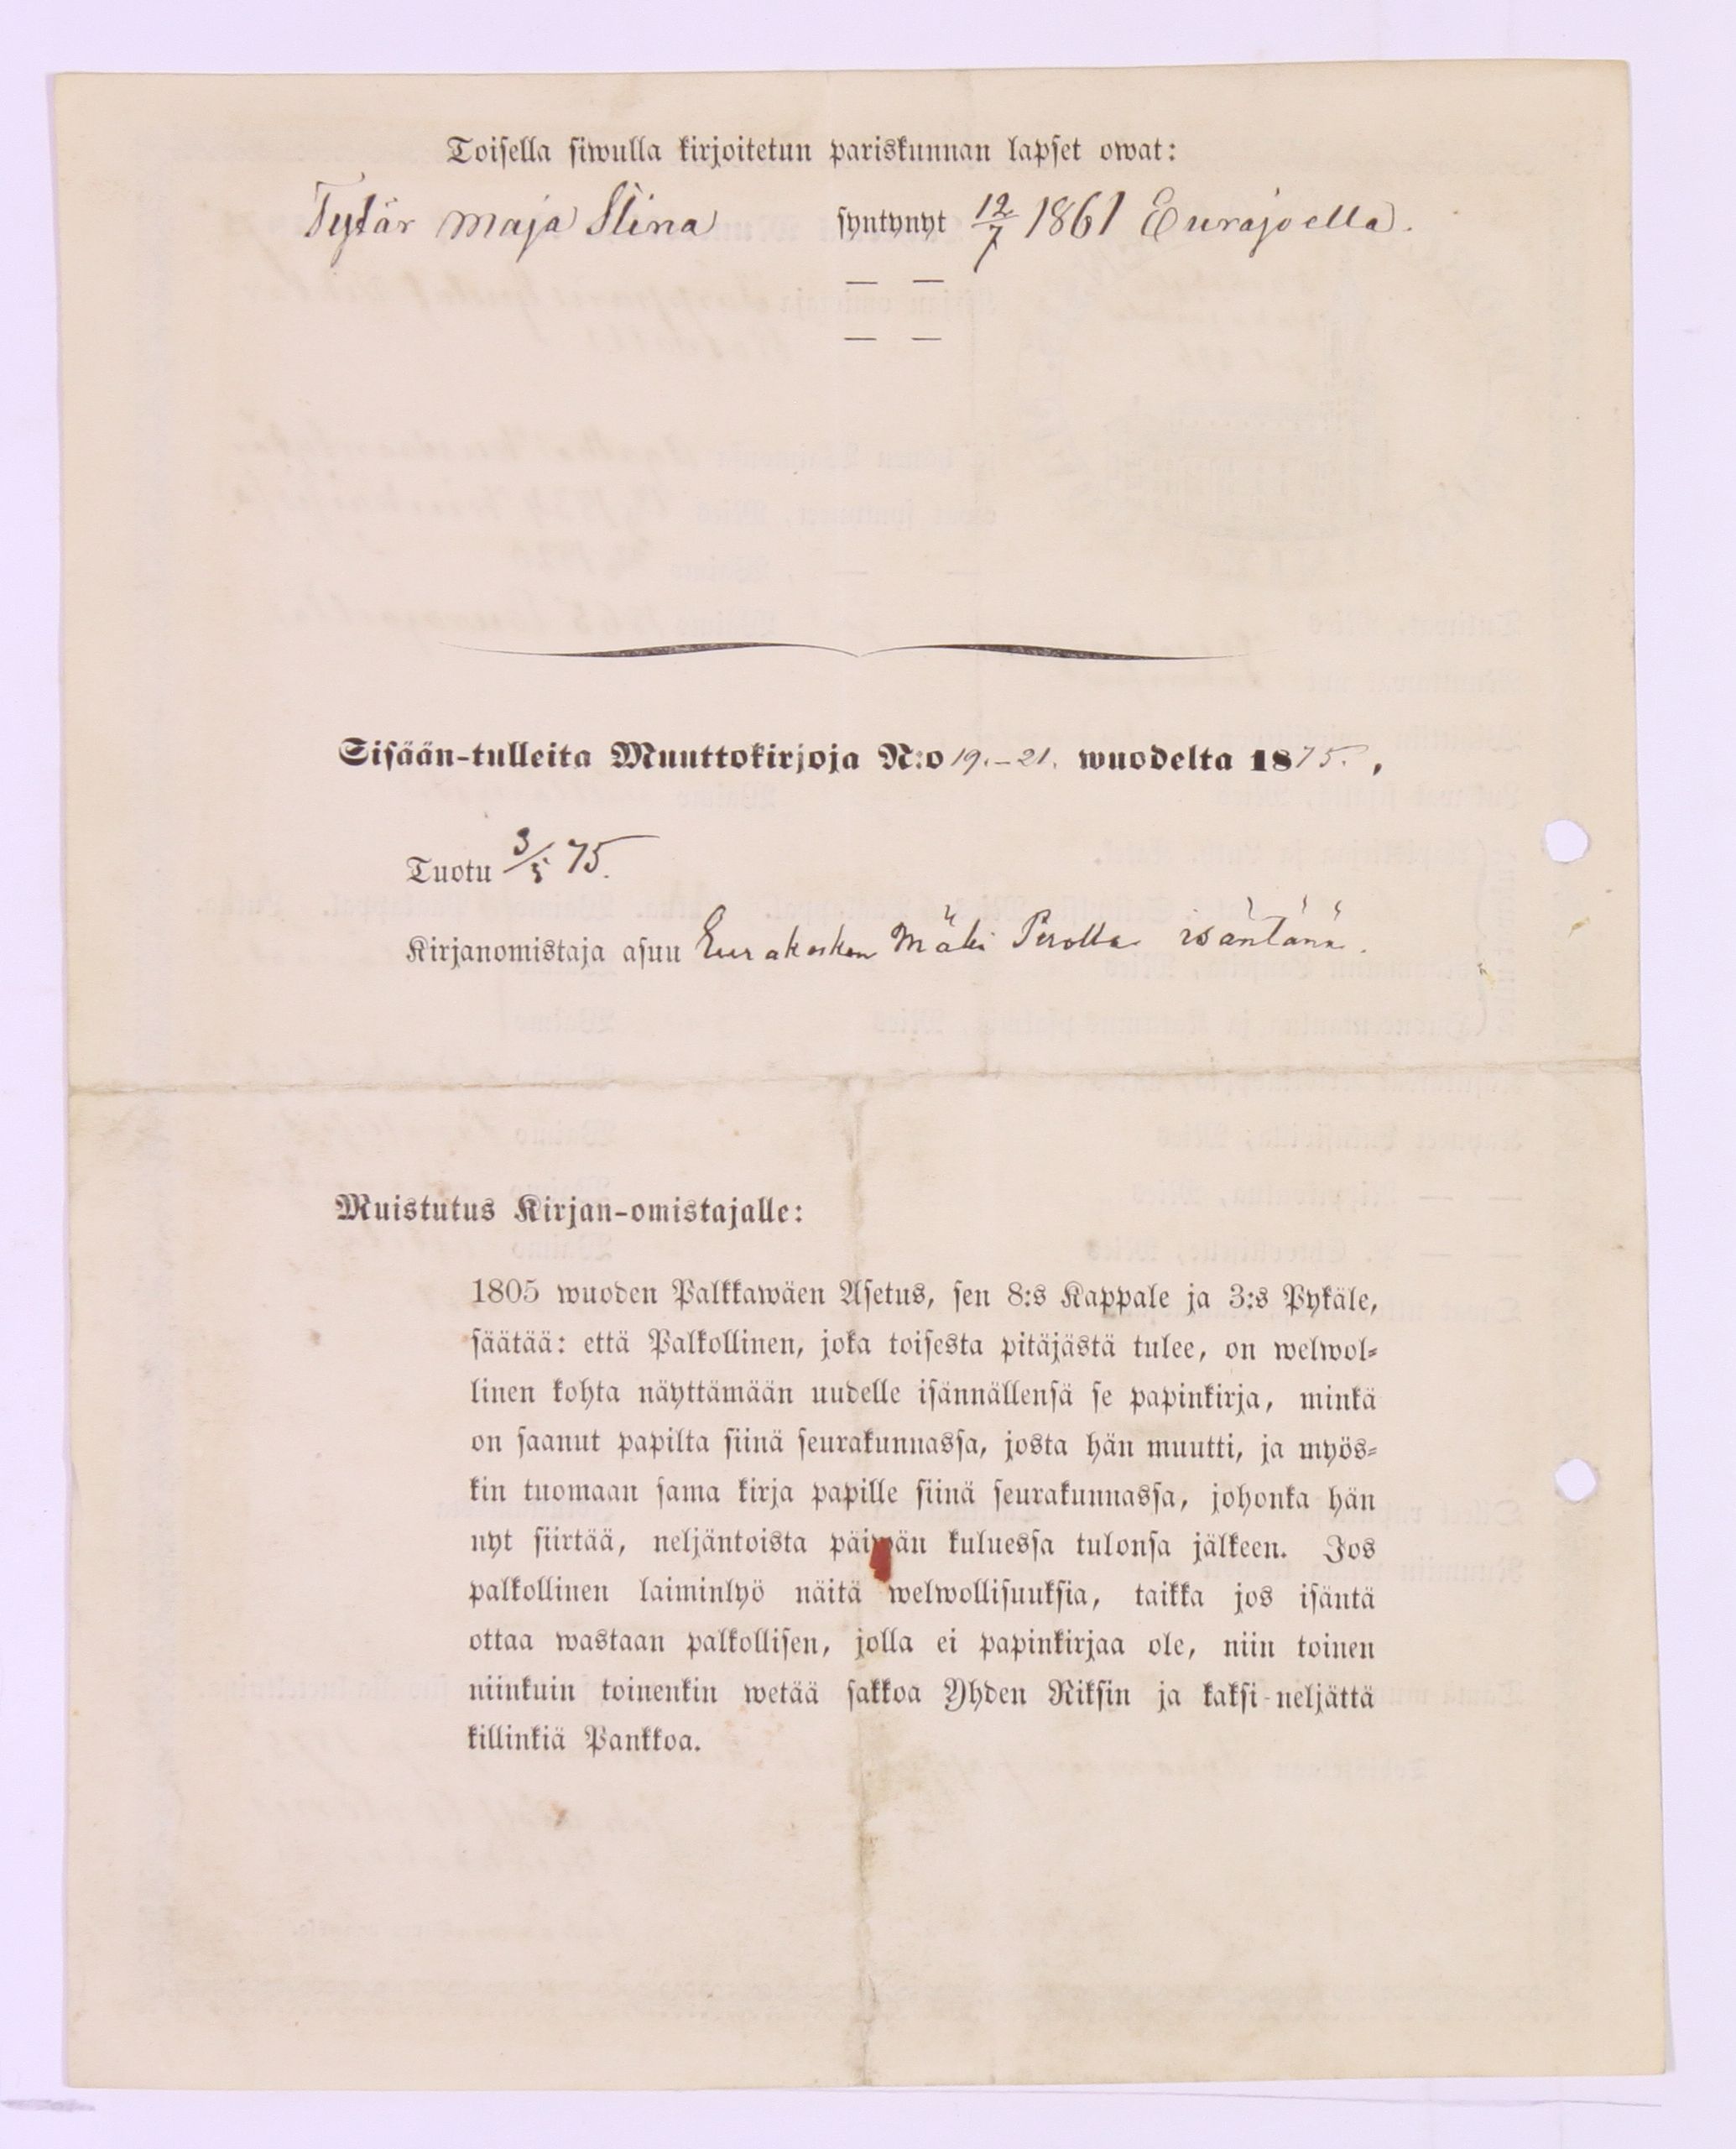 Toisella siwulla kirjoitetun pariskunnan lapset owat:
Tytär Maja Stina syntynyt 12/7 1861 Eurajoella.
— —
— —
Sisään-tulleita Muuttokirjoja N:o 19.–21. wuodelta 1875.,
Tuotu 3/5 75.
Kirjanomistaja asuu Eurakosken Mäki Perolla isäntänä.
Muistutus Kirjan-omistajalle:
1805 wuoden Palkkawäen Asetus, sen 8:s Kappale ja 3:s Pykäle,
säätää: että Palkollinen, joka toisesta pitäjästä tulee, on welwol-
linen kohta näyttämään uudelle isännällensä se papinkirja, minkä
on saanut papilta siinä seurakunnassa, josta hän muutti, ja myös-
kin tuomaan sama kirja papille siinä seurakunnassa, johonka hän
nyt siirtää, neljäntoista päiwän kuluessa tulonsa jälkeen. Jos
palkollinen laiminlyö näitä welwollisuuksia, taikka jos isäntä
ottaa wastaan palkollisen, jolla ei papinkirjaa ole, niin toinen
niinkuin toinenkin wetää sakkoa Yhden Riksin ja kaksi-neljättä
killinkiä Pankkoa.